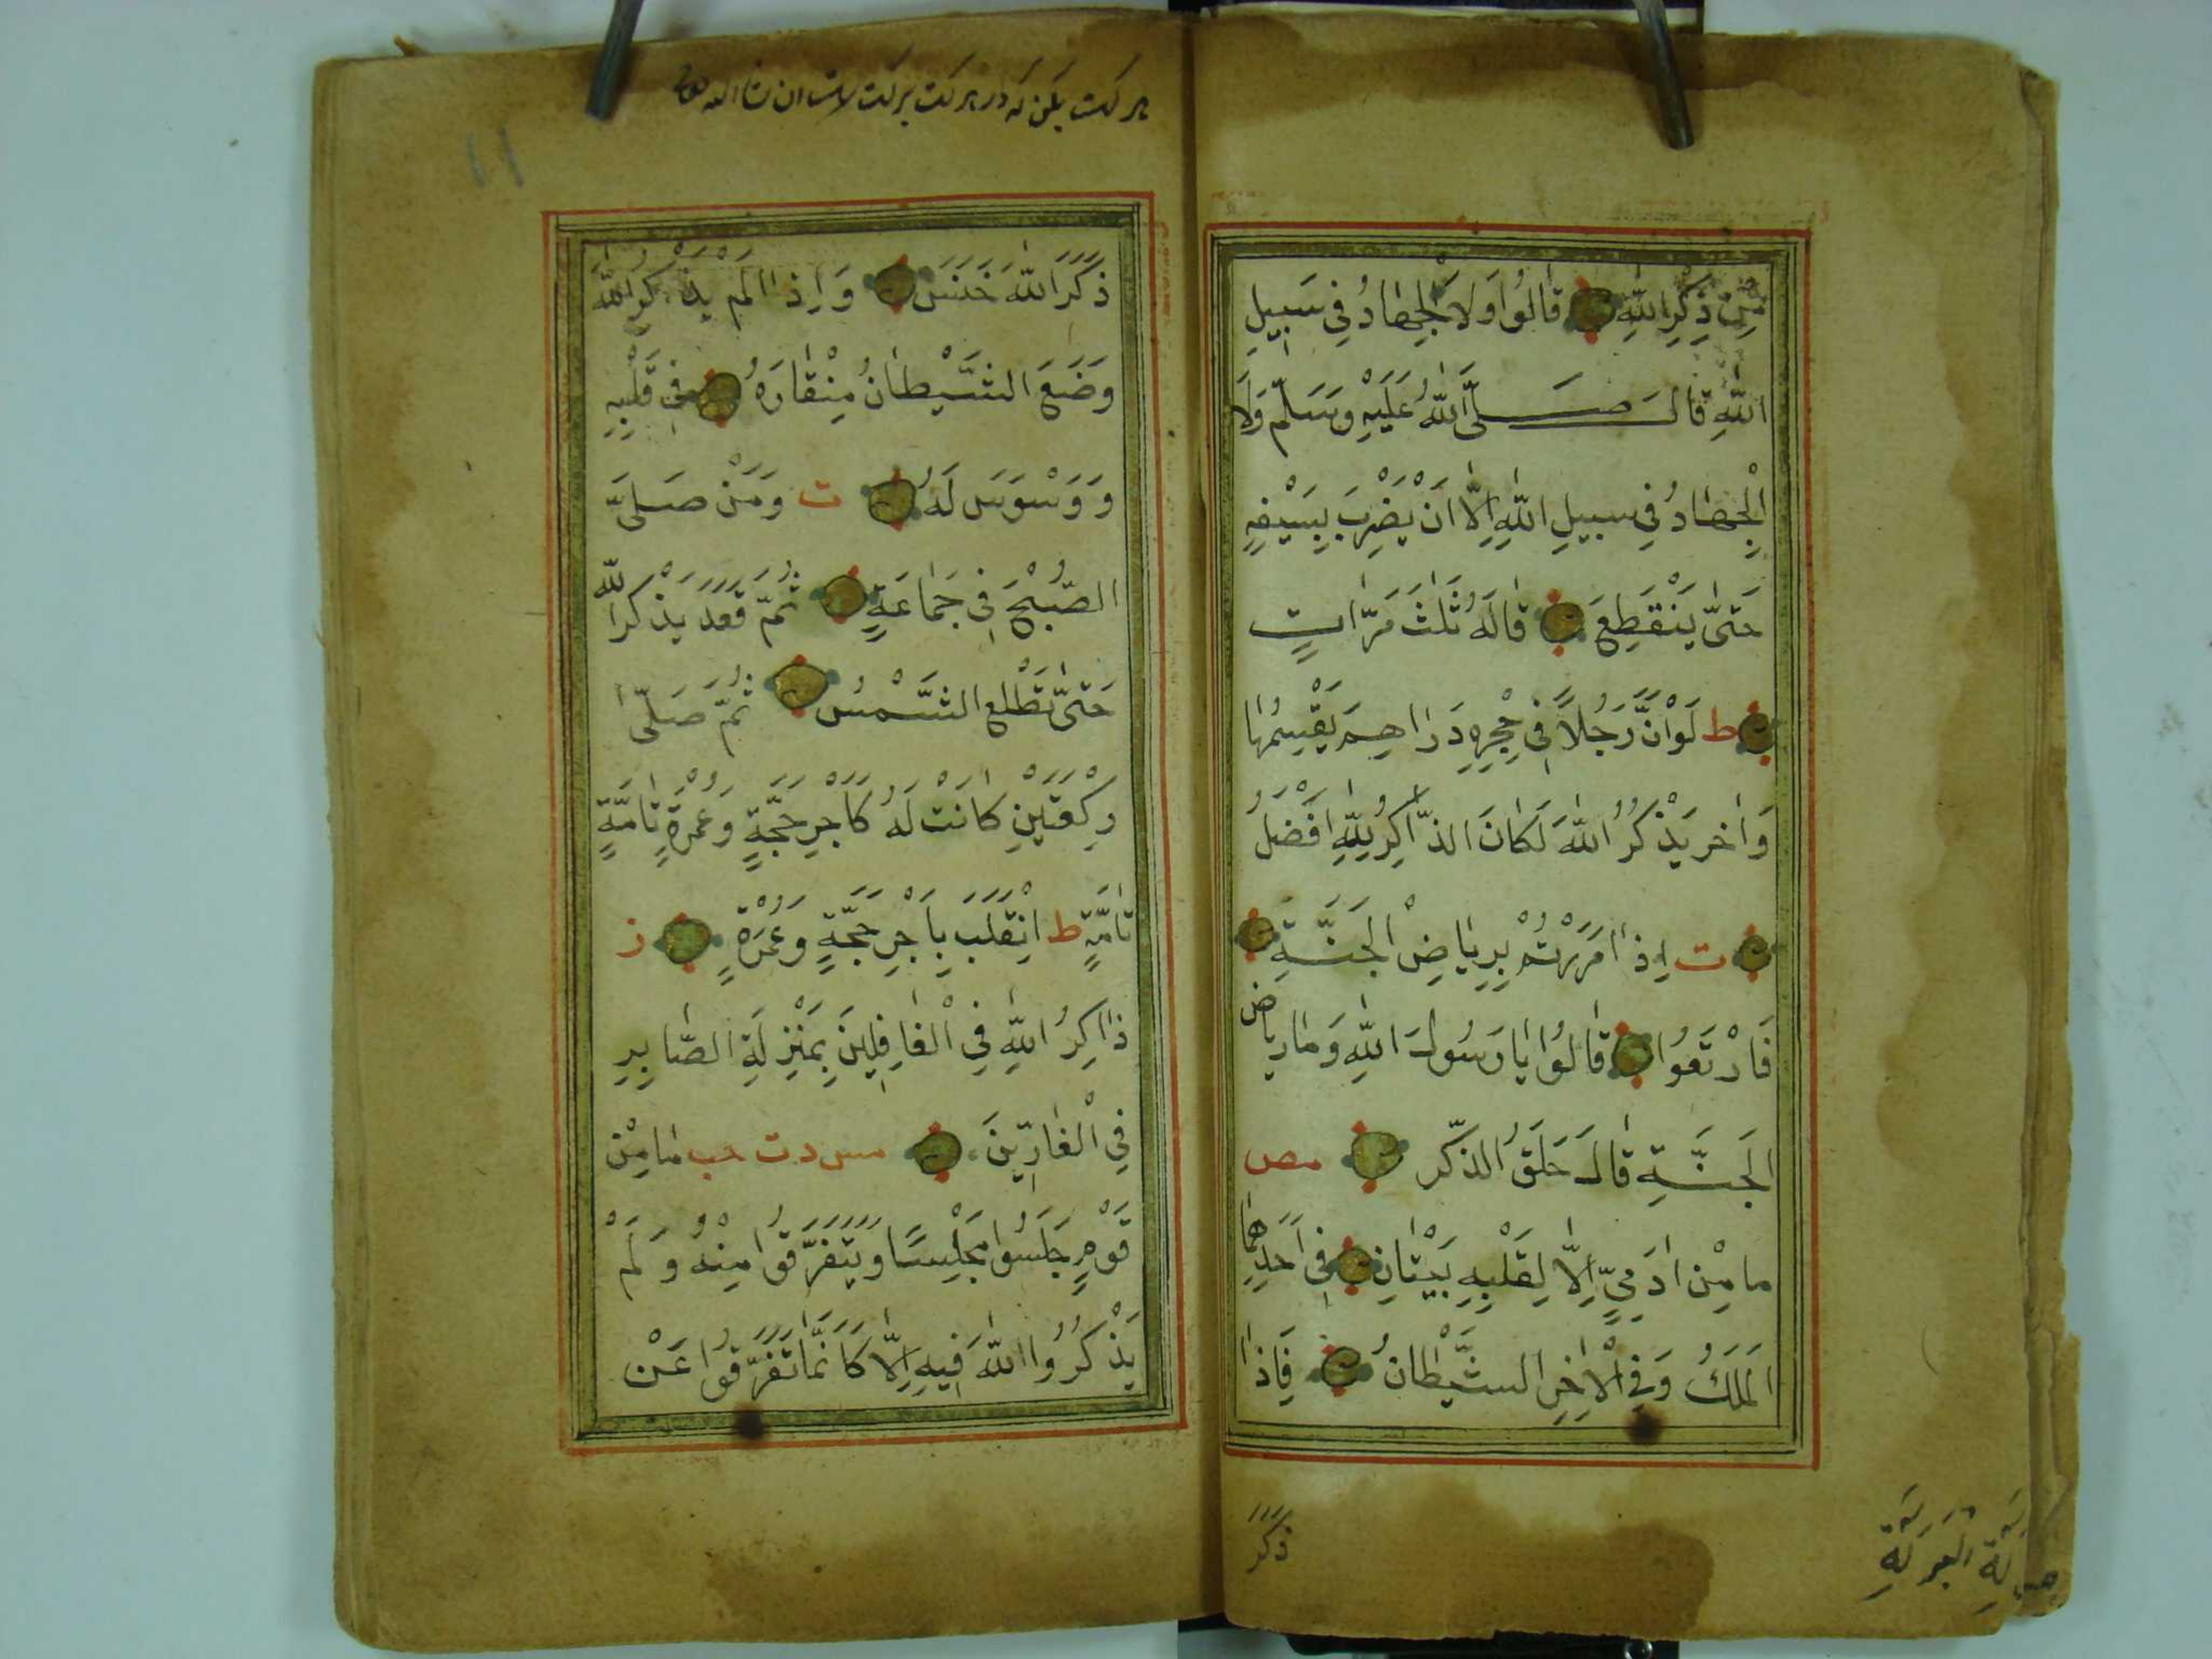 مِنْ ذِكْرِ اللّٰهِ قَالُوا وَلَا الْجِهَادُ فِي سَبِيلِ
اللّٰهِ قَالَ صَلَّى اللّٰهُ عَلَيْهِ وَسَلَّمَ وَلَا
الْجِهَادُ فِي سبيلِ اللّٰهِ اِلَّا اَنْ يَضْرِبَ بِسَيْفِهِ
حَتّٰى يَنْقَطِعَ قَالَهُ ثَلٰثَ مَرَّاتٍ
ط لَوْ اَنَّ رَجُلاً فِي حِجْرِهِ دَرَاهِمَ يَقْسِمُهَا
وَاٰخر يَذْكُرُ اللّٰهَ لَكَانَ الذَّاكِرُ لِلّٰهِ اَفْضَلُ
ت اِذَا مَرَرْتُمْ بِرِيَاضِ الْجَنَّةِ
فَارْتَعُوا قَالُوا يَا رَسُولَ اللّٰهِ وَمَا رِيَاض
الْجَنَّةِ قَالَ حَلَقُ الذّكْر مص
ما مِنْ اٰدَمِيٍّ اِلَّا لِقَلْبِهِ بَيْتَانِ فِي اَحَدِهِمَا
الْمَلَكُ وَفِي الْاٰخِرِ الشَّيْطَانُ فَاِذَا
ذَكَرَ
ذَكَرَ اللّٰهَ خَنَسَ وَاِذَا لَمْ يَذْكُرِ اللّٰهَ
وَضَعَ الشَّيْطَانُ مِنْقَارَهُ فِي قَلْبِهِ
وَوَسْوَسَ لَهُ ت وَمَنْ صَلَّى
الصُّبْحَ فِي جَمَاعَةٍ ثُمَّ قَعَدَ يَذْكر اللّٰه
حَتّٰى تَطْلع الشَّمْسُ ثُمَّ صَلَّى
رَكْعَتَيْنِ كَانَتْ لَهُ كَاَجْرِ حَجَّةٍ وَعُمْرَةٍ تَامَّةٍ
تَامَّةٍ ط اِنْقَلَبَ بِاَجْرِ حَجَّةٍ وَعُمْرَةٍ ز
ذَاكِرُ اللّٰهِ فِي الْغَافِلِينَ بِمَنْزِلَةِ الصَّابِرِ
فِي الْفَارِّينَ مس د ت حب مَا مِنْ
قَوْمٍ جَلَسُوا مَجْلِسًا وَتَفَرَّقُوا مِنْهُ وَلَمْ
يَذْكُرُوا اللّٰهَ فِيهِ اِلَّا كَاَنَّمَا تَفَرَّقُوا عَنْ